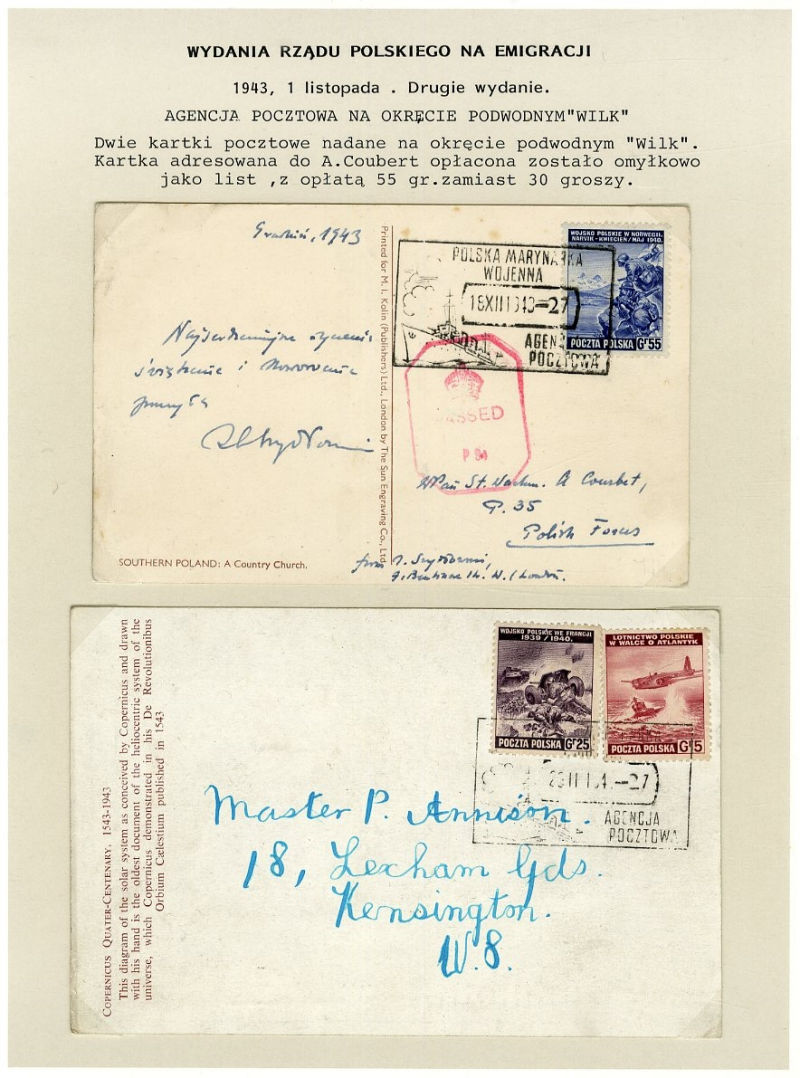 WYDANIA RZĄDU POLSKIEGO NA EMIGRACJI
1943, 1 listopada . Drugie wydanie.
AGENCJA POCZTOWA NA OKRĘCIE PODWODNYM"WILK"
Dwie kartki pocztowe nadane na okręcie podwodnym "Wilk".
Kartka adresowana do A.Coubert opłacona zostało omyłkowo
jako list ,z opłatą 55 gr.zamiast 30 groszy.
Grudzień, 1943
Najserdeczniejsze życzenia
świąteczne i Noworoczne
Printed for M. I. Kolin (Publishers) Ltd., London by The Sun Engraving Co., Ltd.
POLSKA MARYNARKA
WOJENNA
18XII1943-27
AGENCJA
POCZTOWA
WOJSKO POLSKIE W NORWEGII,
NARVIK - KWIECIEŃ/MAJ 1940.
POCZTA POLSKA Gr55
PASSED
P
WPan St. Wachm. A Courbet,
P. 35
Polish Forces
from
London.
SOUTHERN POLAND: A Country Church.
COPERNICUS QUATER-CENTENARY. 1543-1943
This diagram of the solar system as conceived by Copernicus and drawn
with his hand is the oldest document of the heliocentric system of the
universe, which Copernicus demonstrated in his De Revolutionibus
Orbium Cælestium published in 1543
WOJSKO POLSKIE WE FRANCJI
1939/1940.
POCZTA POLSKA Gr25
LOTNICTWO POLSKIE
W WALCE O ATLANTYK
POCZTA POLSKA Gr5
AGENCJA
POCZTOWA
Master P. Annison.
18, Lexham Gds.
Kensington.
W.8.